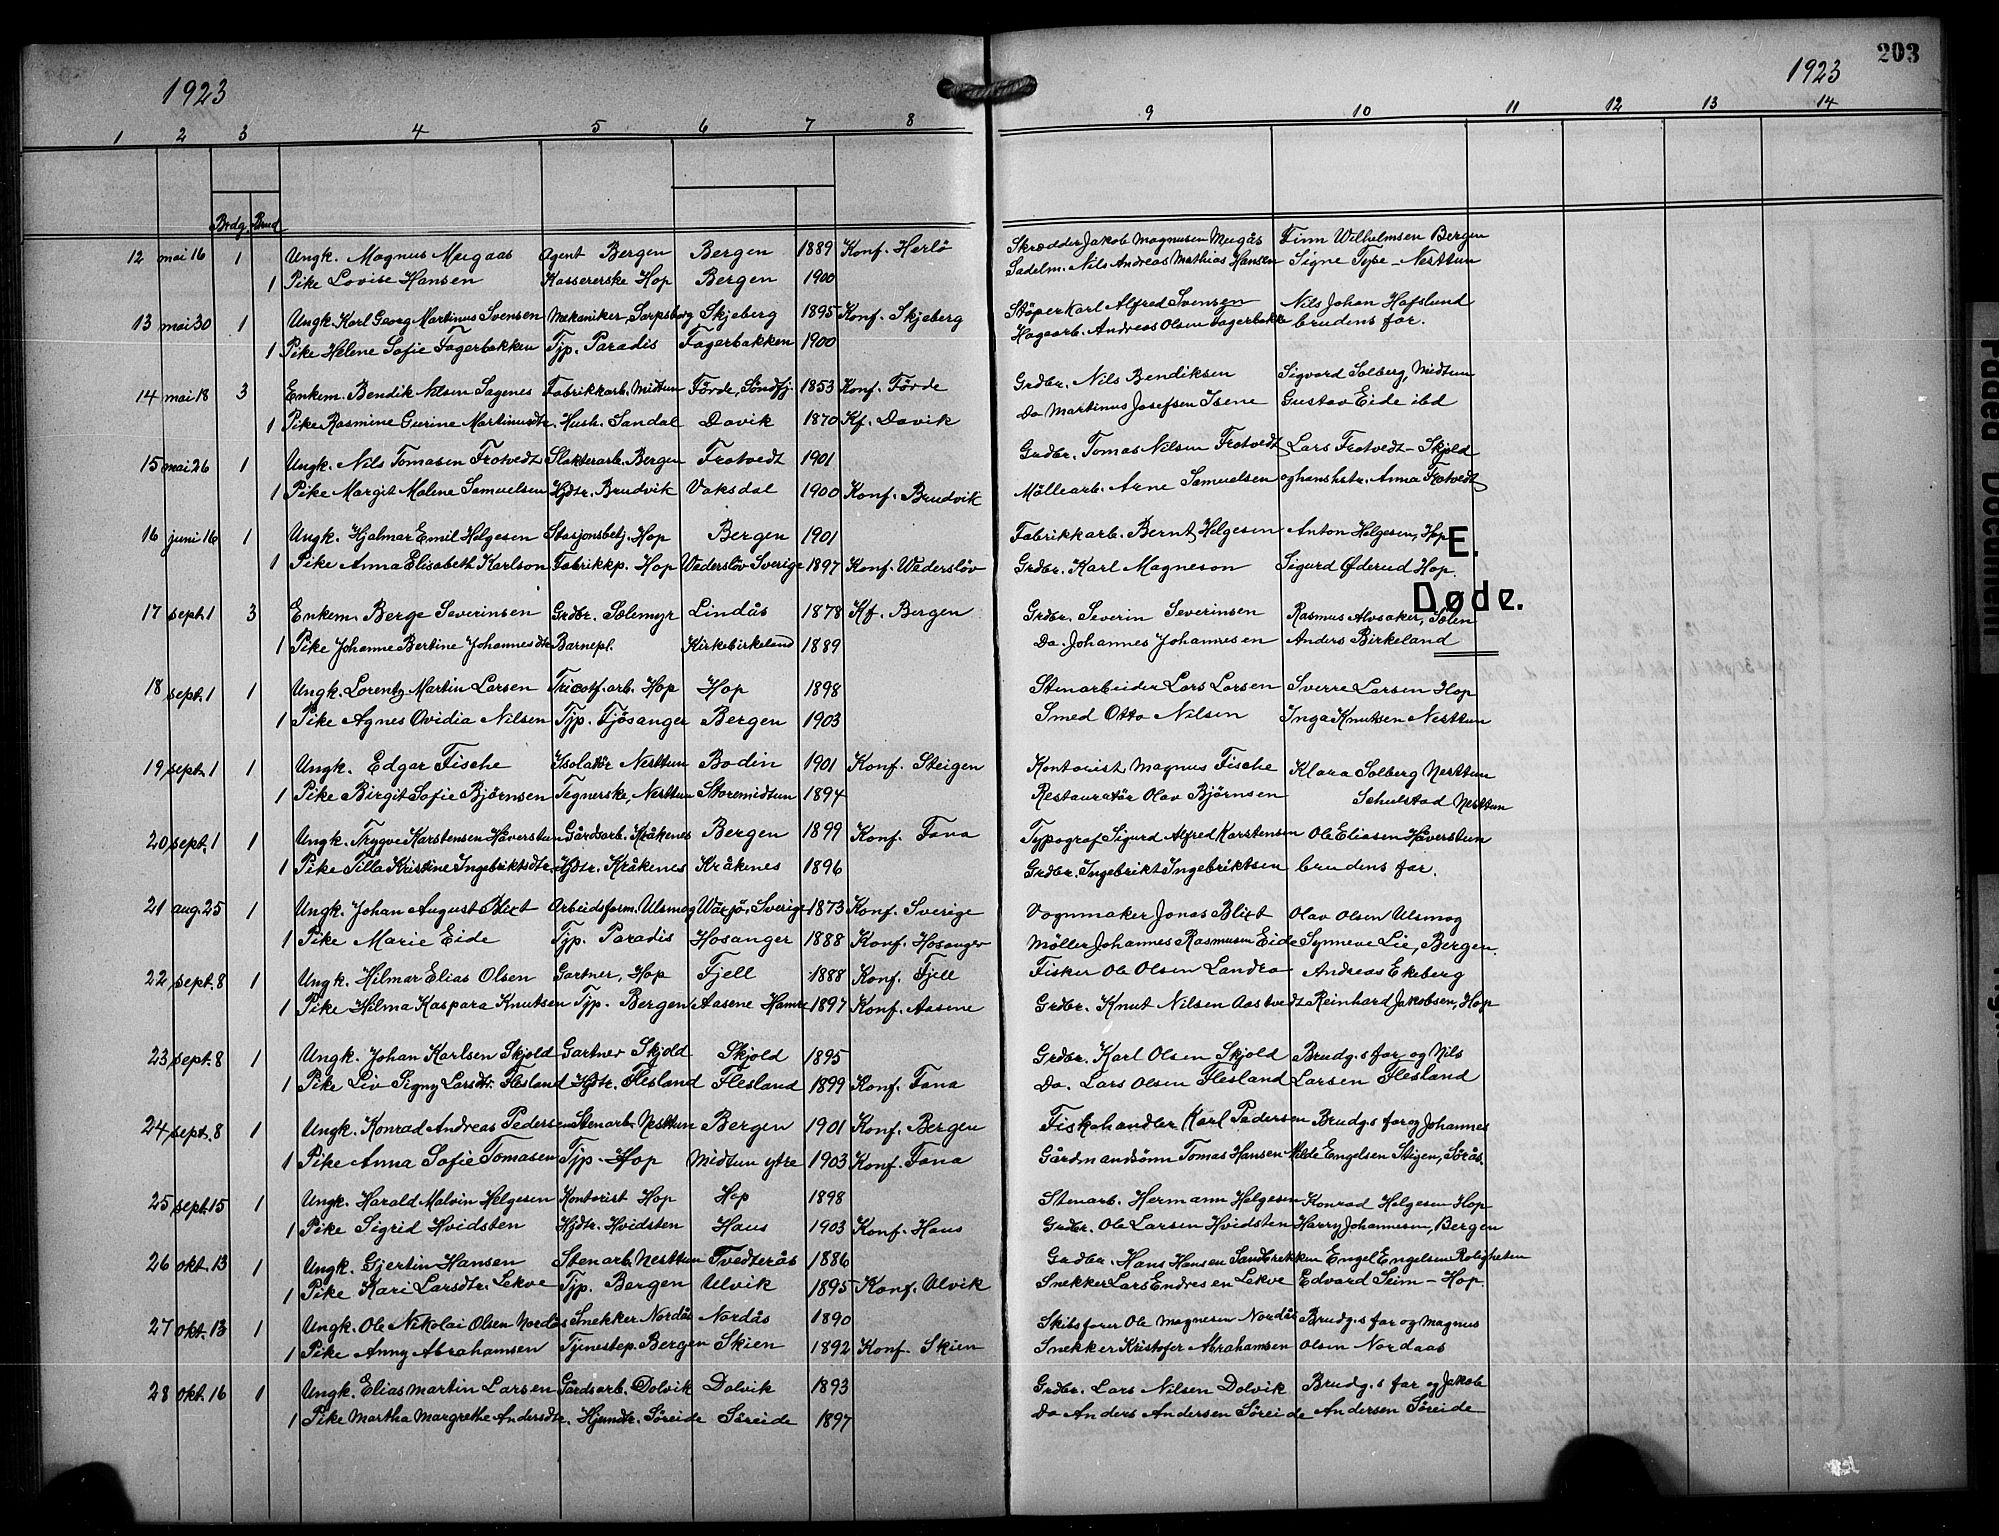 203
1923
1923
1 2 3 4 5 6 7 8 9 10 11 12 13 14
Brdg. Brud
12 mai 16 1 Ungk. Magnus Meigaas Agent Bergen Bergen 1889 Konf. Herlö Skrædder Jakob Magnusen Meigås Finn Wilhelmsen Bergen
1 Pike Lovise Hansen Kassererske Hop Bergen 1900 Sadelm. Nils Andreas Mathias Hansen Signe Type - Nesttun
13 mai 30 1 Ungk. Karl Georg Martinus Svensen Mekaniker, Sarpsborg Skjeberg 1895 Konf. Skjeberg Støper Karl Alfred Svensen Nils Johan Hafslund
1 Pike Helene Sofie Fagerbakken Tjp. Paradis Fagerbakken 1900 Hagearb. Andreas Olsen Fagerbakke brudens far.
14 mai 18 3 Enkem. Bendik Nilsen Sagenes Fabrikkarb. Midtun Førde, Søndfj. 1853 Konf. Førde Grdbr. Nils Bendiksen Sigvard Solberg, Midtun
1 Pike Rasmine Gurine Martinusdtr. Hush. Sandal Davik 1870 Kf. Davik Do Martinus Josefsen Isene Gustav Eide ibd
15 mai 26 1 Ungk. Nils Tomasen Frotvedt Slakterarb. Bergen Frotvedt 1901 Grdbr. Tomas Nilsen Frotvedt Lars Frotvedt - Skjold
1 Pike Margit Malene Samuelsen Hjdtr. Brudvik Vaksdal 1900 Konf. Brudvik Möllearb. Arne Samuelsen og hanshstr. Anna Frotvedt
16 juni 16 1 Ungk. Hjalmar Emil Helgesen Stasjonsbetj. Hop Bergen 1901 Fabrikkarb. Bernt Helgesen Anton Helgesen, Hop
E.
1 Pike Anna Elisabeth Karlson Fabrikkp. Hop Wederslöv Sverige 1897 Konf. Wederslöv Grdbr. Karl Magneson Sigurd Øderud Hop.
Døde.
17 sept. 1 3 Enkem. Berge Severinsen Grdbr. Solemyr Lindås 1878 Kf. Bergen Grdbr. Severin Severinsen Rasmus Alvsaker, Solen
1 Pike Johanne Bertine Johannesdtr Barnepl. Kirkebirkeland 1889 Do. Johannes Johannesen Anders Birkeland
18 sept. 1 1 Ungk. Lorentz Martin Larsen Tricotf. arb. Hop Hop 1898 Stenarbeider Lars Larsen Sverre Larsen Hop
1 Pike Agnes Ovidia Nilsen Tjp. Fjösanger Bergen 1903 Smed Otto Nilsen Inga Knutsen Nesttun
19 sept. 1 1 Ungk. Edgar Fische Isolatør Nesttun Bodin 1901 Konf. Steigen Kontorist Magnus Fische Klara Solberg Nesttun
1 Pike Birgit Sofie Bjørnsen Tegnerske, Nesttun Storemidtun 1894 Restauratör Olav Bjørnsen Schulstad Nesttun
20 sept. 1 1 Ungk. Trygve Karstensen Håverstun Gårdsarb. Kråkenes Bergen 1899 Konf. Fana Typograf Sigurd Alfred Karstensen Ole Eliasen Håverstun
1 Pike Tilla Kristine Ingebriktsdtr. Hjdtr. Kråkenes Kråkenes 1896 Grdbr. Ingebrikt Ingebriktsen brudens far.
21 aug. 25 1 Ungk. Johan August Blixt Arbeidsform. Ulsmog Wäxjö, Sverige 1873 Konf. Sverige Vognmaker Jonas Blixt Olav Olsen Ulsmog
1 Pike Marie Eide Tjp. Paradis Hosanger 1888 Konf. Hosanger Möller Johannes Rasmusen Eide Synneve Lie, Bergen.
22 sept. 8 1 Ungk. Hilmar Elias Olsen Gartner, Hop Fjell 1888 Konf. Fjell Fisker Ole Olsen Landro Andreas Ekeberg
1 Pike Hilma Kaspara Knutsen Tjp. Bergen Aasene Hamre 1897 Konf. Aasene Grdbr. Knut Nilsen Aastvedt Reinhard Jakobsen, Hop
23 sept. 8 1 Ungk. Johan Karlsen Skjold Gartner Skjold Skjold 1895 Grdbr. Karl Olsen Skjold Brudg.s far og Nils
1 Pike Liv Signy Larsdtr. Flesland Hjdtr. Flesland Flesland 1899 Konf. Fana Do. Lars Olsen Flesland Larsen Flesland
24 sept. 8 1 Ungk. Konrad Andreas Pedersen Stenarb. Nesttun Bergen 1901 Konf. Bergen Fiskehandler Karl Pedersen Brudg.s far og Johannes
1 Pike Anna Sofie Tomasen Tjp. Hop Midtun ytre 1903 Konf. Fana Gårdmandsönn Tomas Hansen Milde Engelsen Stigen, Sörås.
25 sept. 15 1 Ungk. Harald Malvin Helgesen Kontorist Hop Hop 1898 Stenarb. Hermann Helgesen Konrad Helgesen Hop
1 Pike Sigrid Hvidsten Hjdtr. Hvidsten Haus 1903 Konf. Haus Grdbr. Ole Larsen Hvidsten Harry Johannesen, Bergen
26 okt. 13 1 Ungk. Gjertin Hansen Stenarb. Nesttun Tvedterås 1886 Grdbr. Hans Hansen Sandbrekken Engel Engelsen Roligheten
1 Pike Kari Larsdtr. Lekve Tjp. Bergen Ulvik 1895 Konf. Ulvik Snekker Lars Endresen Lekve Edvard Seim - Hop.
27 okt. 13 1 Ungk. Ole Nikolai Olsen Nordås Snekker Nordås Nordås 1890 Skibsfører Ole Magnesen Nordås Brudg.s far og Magnus
1 Pike Anny Abrahamsen Tjenestep. Bergen Skien 1892 Konf. Skien Snekker Kristofer Abrahamsen Olsen Nordaas
28 okt. 16 1 Ungk. Elias Martin Larsen Gårdsarb. Dolvik Dolvik 1893 Grdbr. Lars Nilsen Dolvik Brudg.s far og Jakob
1 Pike Martha Margrethe Andersdtr. Hjemdtr. Søreide Søreide 1897 Do Anders Andersen Søreide Andersen Søreide